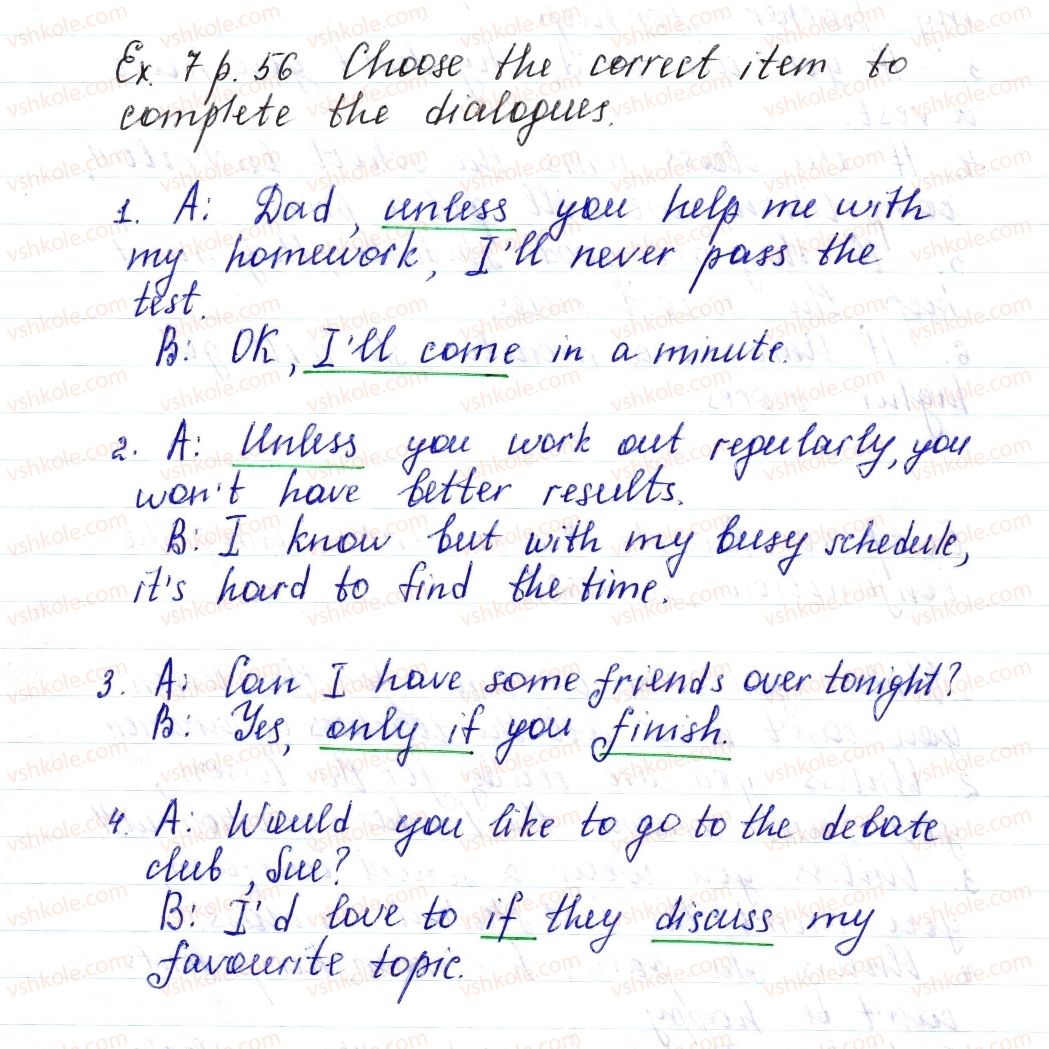 Ex. 7 p. 56 Choose the correct item to
complete the dialogues.
1. A: Dad, unless you help me with
my homework, I'll never pass the
test.
B: OK, I'll come in a minute.
2. A: Unless you work out regularly, you
won't have better results.
B: I know but with my busy schedule,
it's hard to find the time.
3. A: Can I have some friends over tonight?
B: Yes, only if you finish.
4. A: Would you like to go to the debate
club, Sue?
B: I'd love to if they discuss my
favourite topic.
vshkole.com